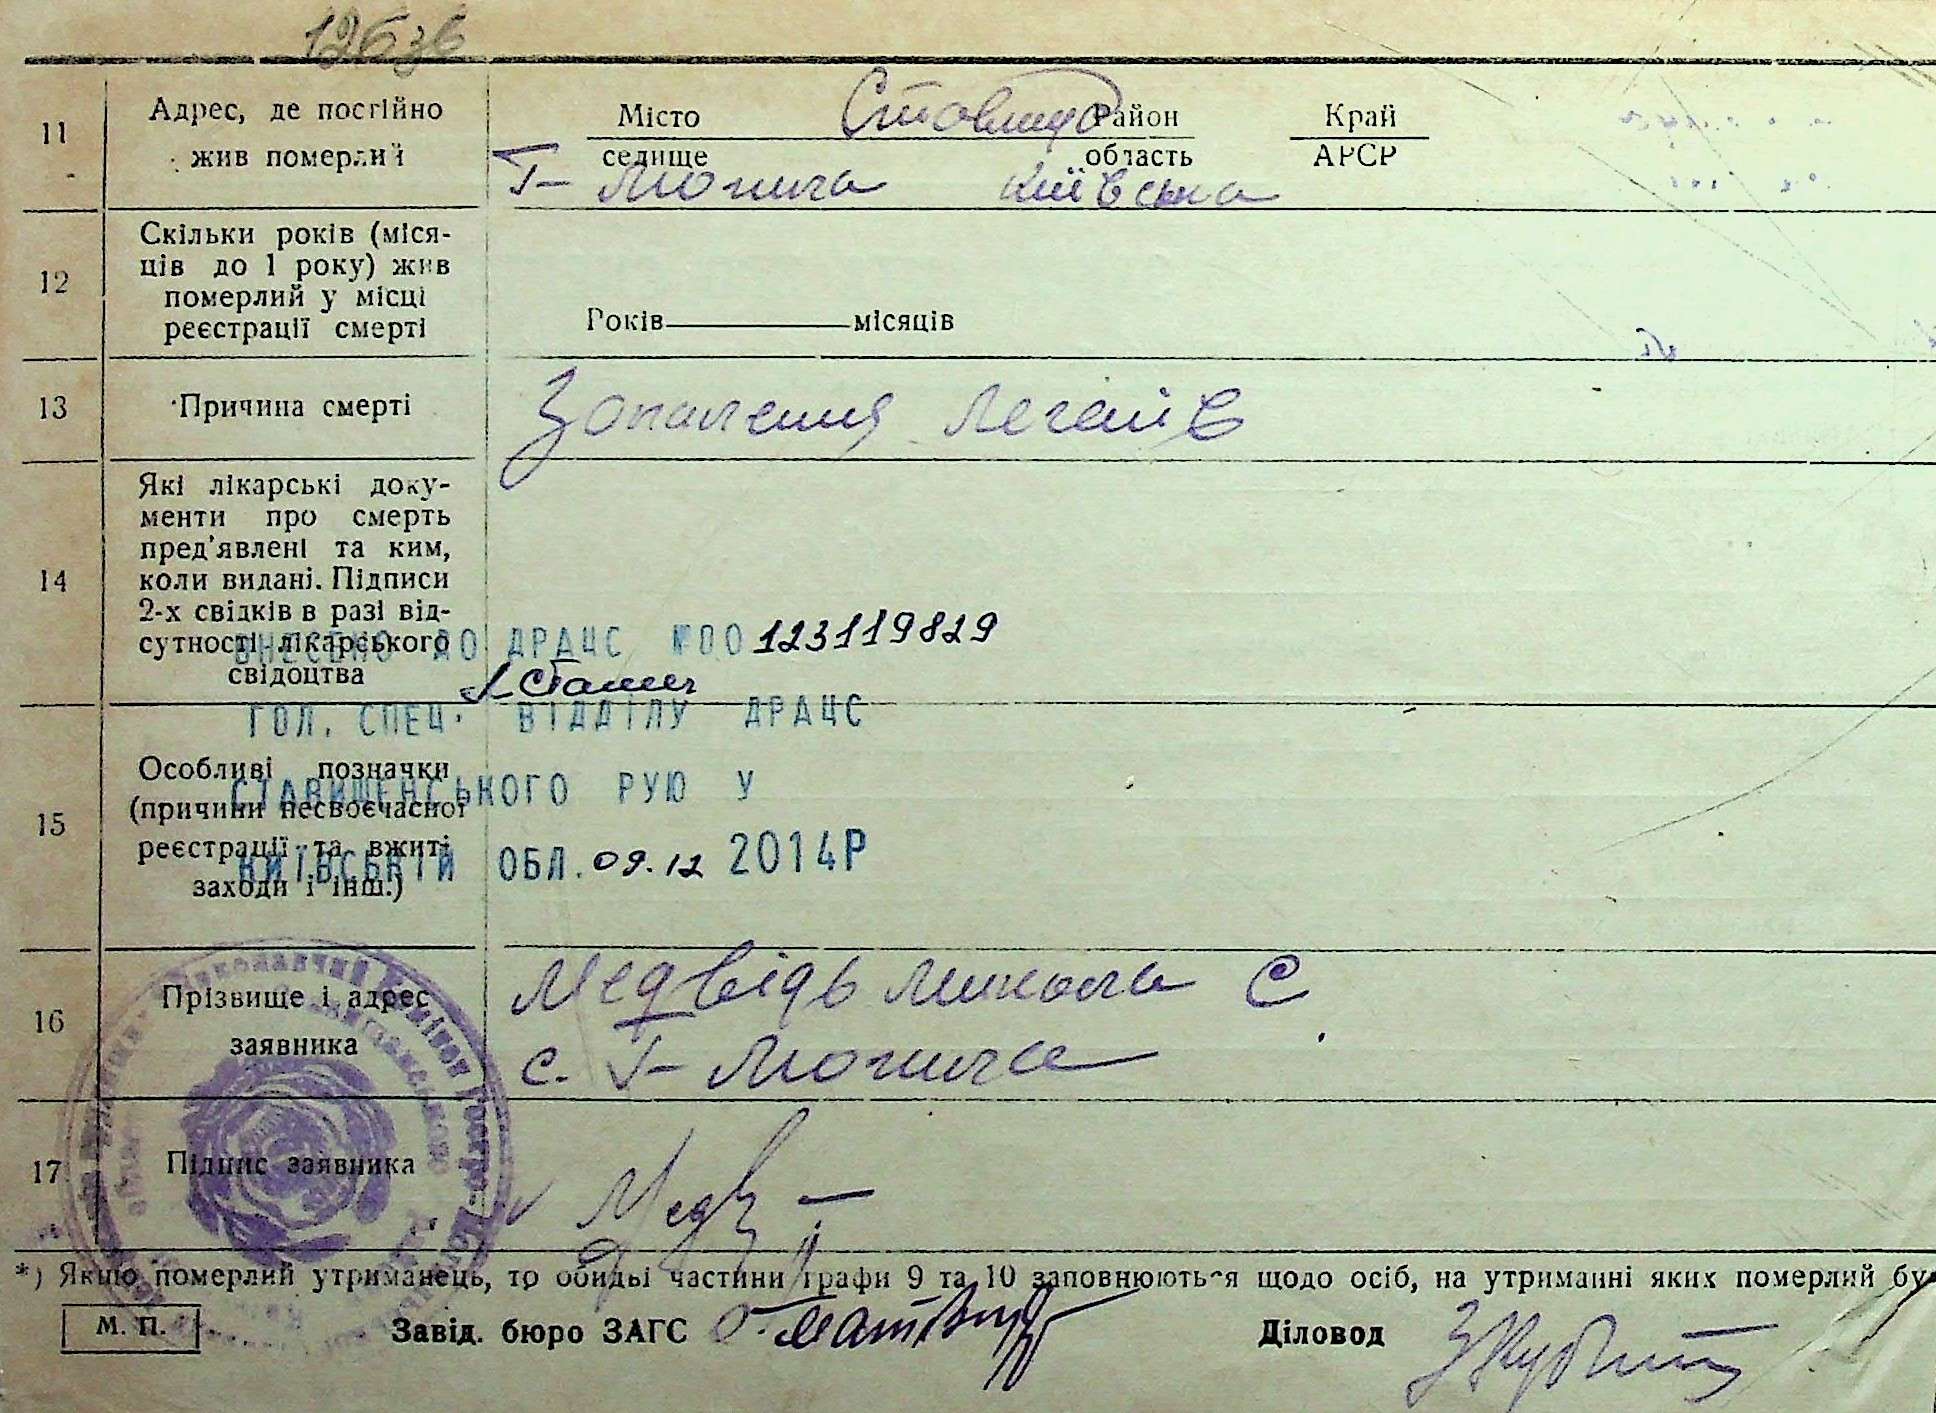 11
Адрес, де постійно
жив померлий
Місто
Район
Край
селище
область
АРСР
Г-Могила Київська
12
Скільки років (міся-
ців до 1 року) жив
померлий у місці
реєстрації смерті
Років місяців
13
Причина смерті
Запалення легенів
14
Які лікарські доку-
менти про смерть
пред'явлені та ким,
коли видані. Підписи
2-х свідків в разі від-
сутності лікарського
свідоцтва
ВНЕСЕНО ДО ДРАЦС №00123119829
ГОЛ. СПЕЦ. ВІДДІЛУ ДРАЦС
15
Особливі позначки
(причини несвоєчасної
реєстрації та вжиті
заходи і інш.)
СТАВИЩЕНСЬКОГО РУЮ У
КИЇВСЬКІЙ ОБЛ. 09.12 2014Р
16
Прізвище і адрес
заявника
Медвідь Микола С
с. Г-Могила
17
Підпис заявника
*) Якщо померлий утриманець, то обидві частини графи 9 та 10 заповнюються щодо осіб, на утриманні яких померлий бу
М. П.
Завід. бюро ЗАГС
Діловод